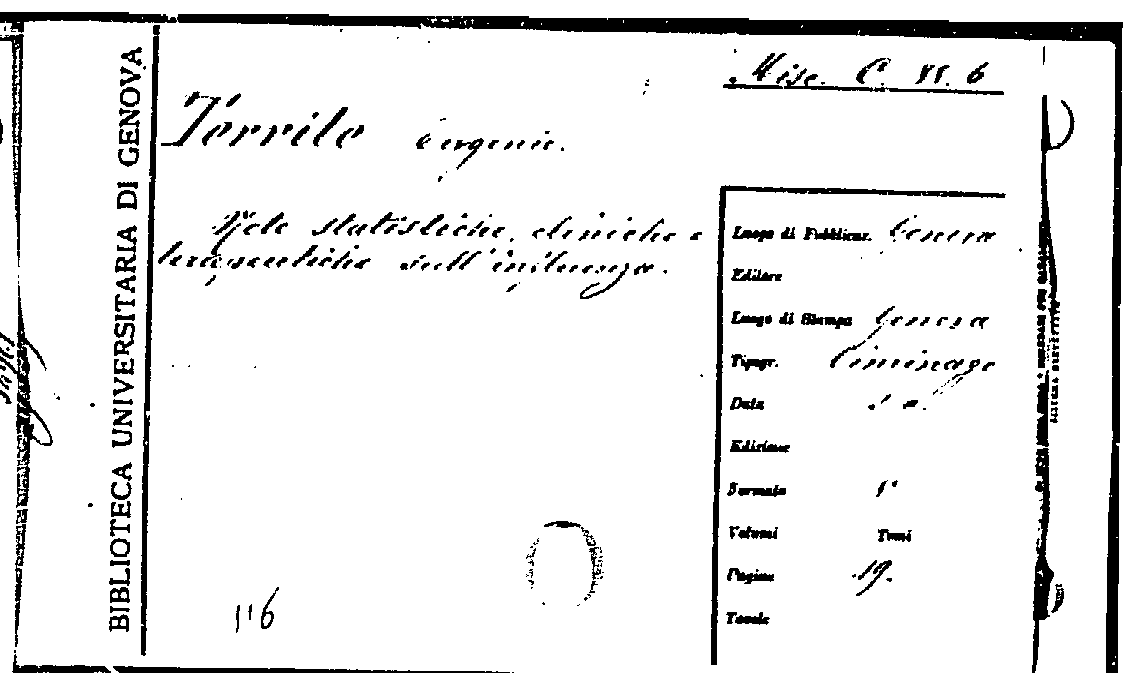 BIBLIOTECA UNIVERSITARIA DI GENOVA
Misc. C. VI. 6
Ferrile Eugenio.
Note statistiche, cliniche e
terapeutiche sull'influenza.
Luogo di Pubblicaz. Genova
Editore
Luogo di Stampa Genova
Tipogr. Ciminago
Data s. a.
Edizione
Formato 8°
Volumi Tomi
Pagine 19.
Tavole
116